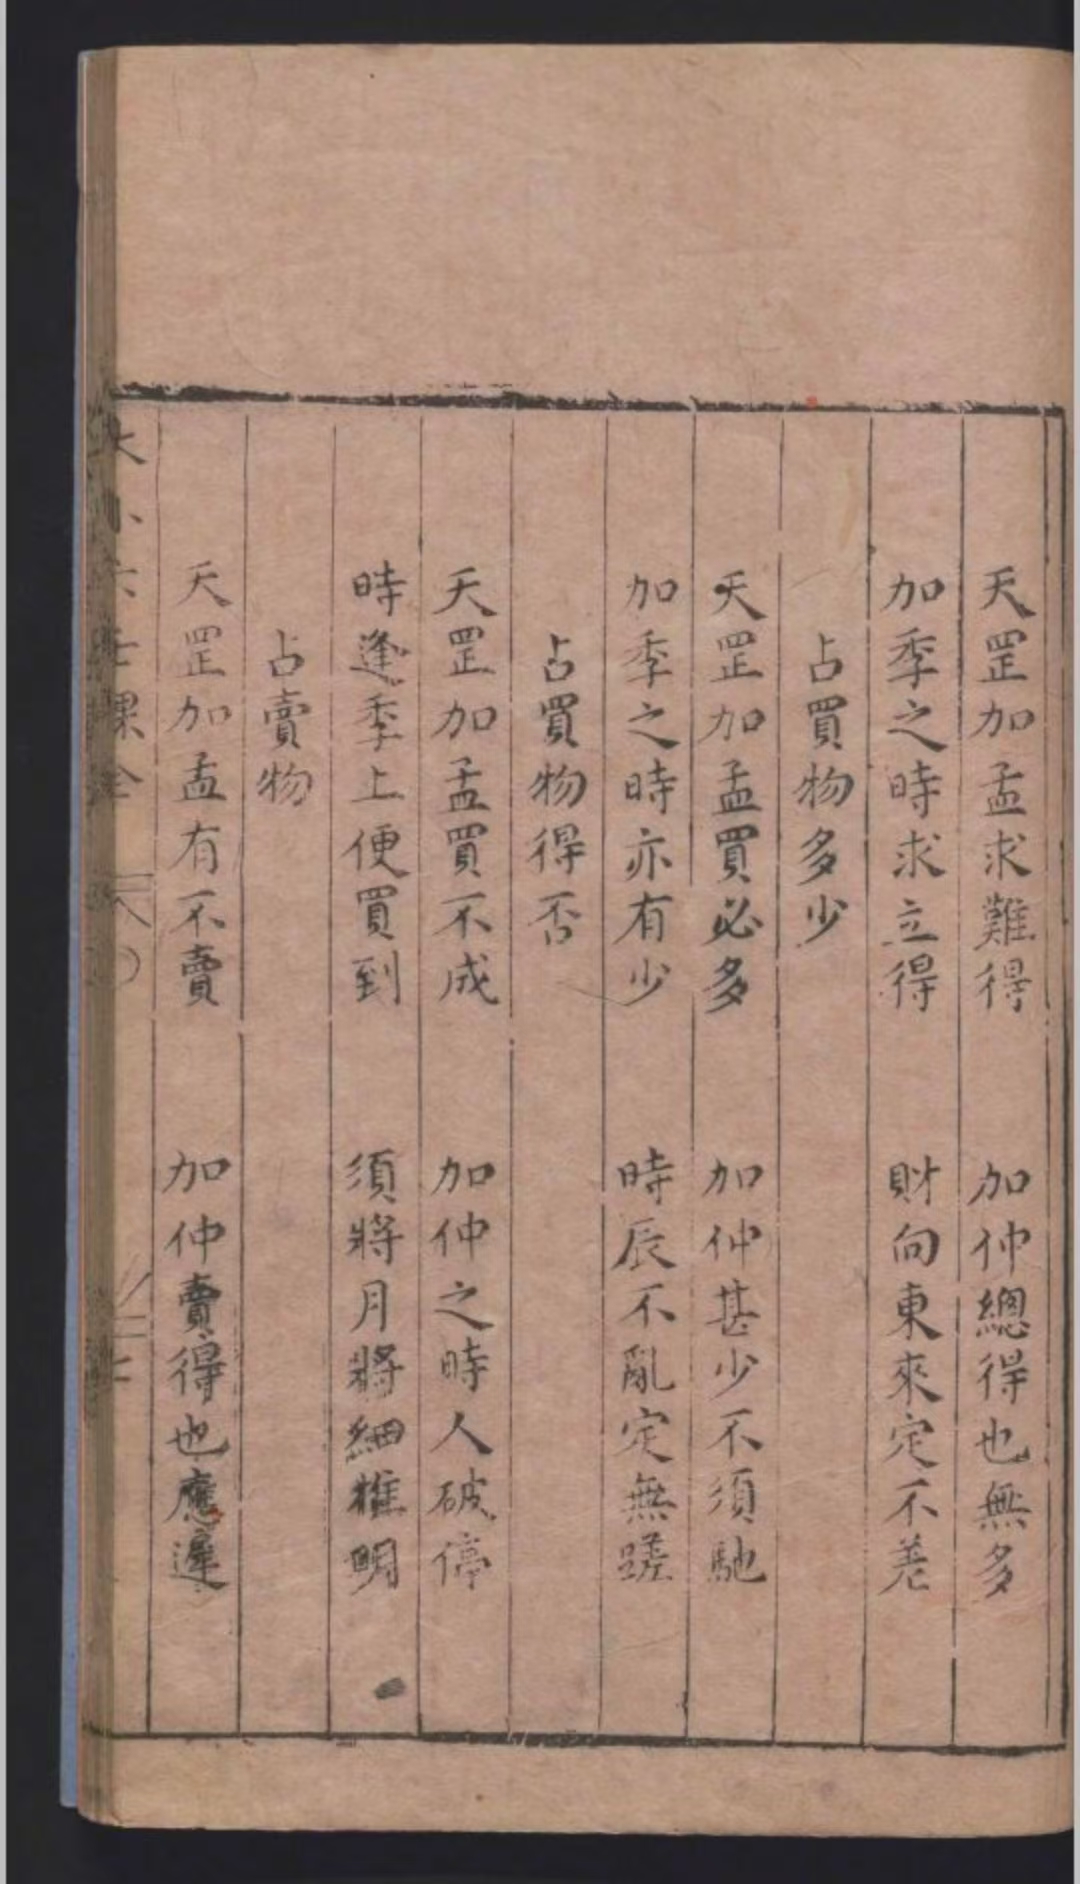 天罡加孟求難得　加仲總得也無多
加季之時求立得　財向東來定不差
占買物多少
天罡加孟買必多　加仲甚少不須馳
加季之時亦有少　時辰不亂定無蹉
占買物得否
天罡加孟買不成　加仲之時人破停
時逢季上便買到　須將月將細推明
占賣物
天罡加孟有不賣　加仲賣得也應遲
大小六壬課全